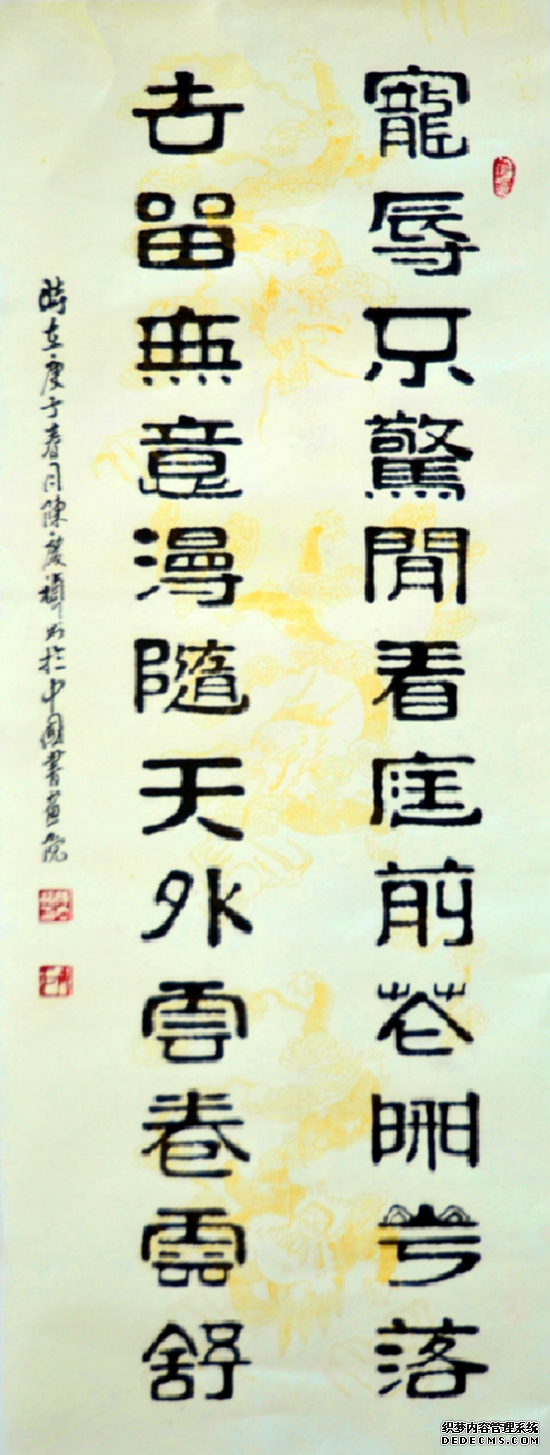 寵辱不驚閒看庭前花開花落
去留無意漫隨天外雲卷雲舒
時在庚子春月陳慶书於中國書畫院
织梦内容管理系统
DEDECMS.COM